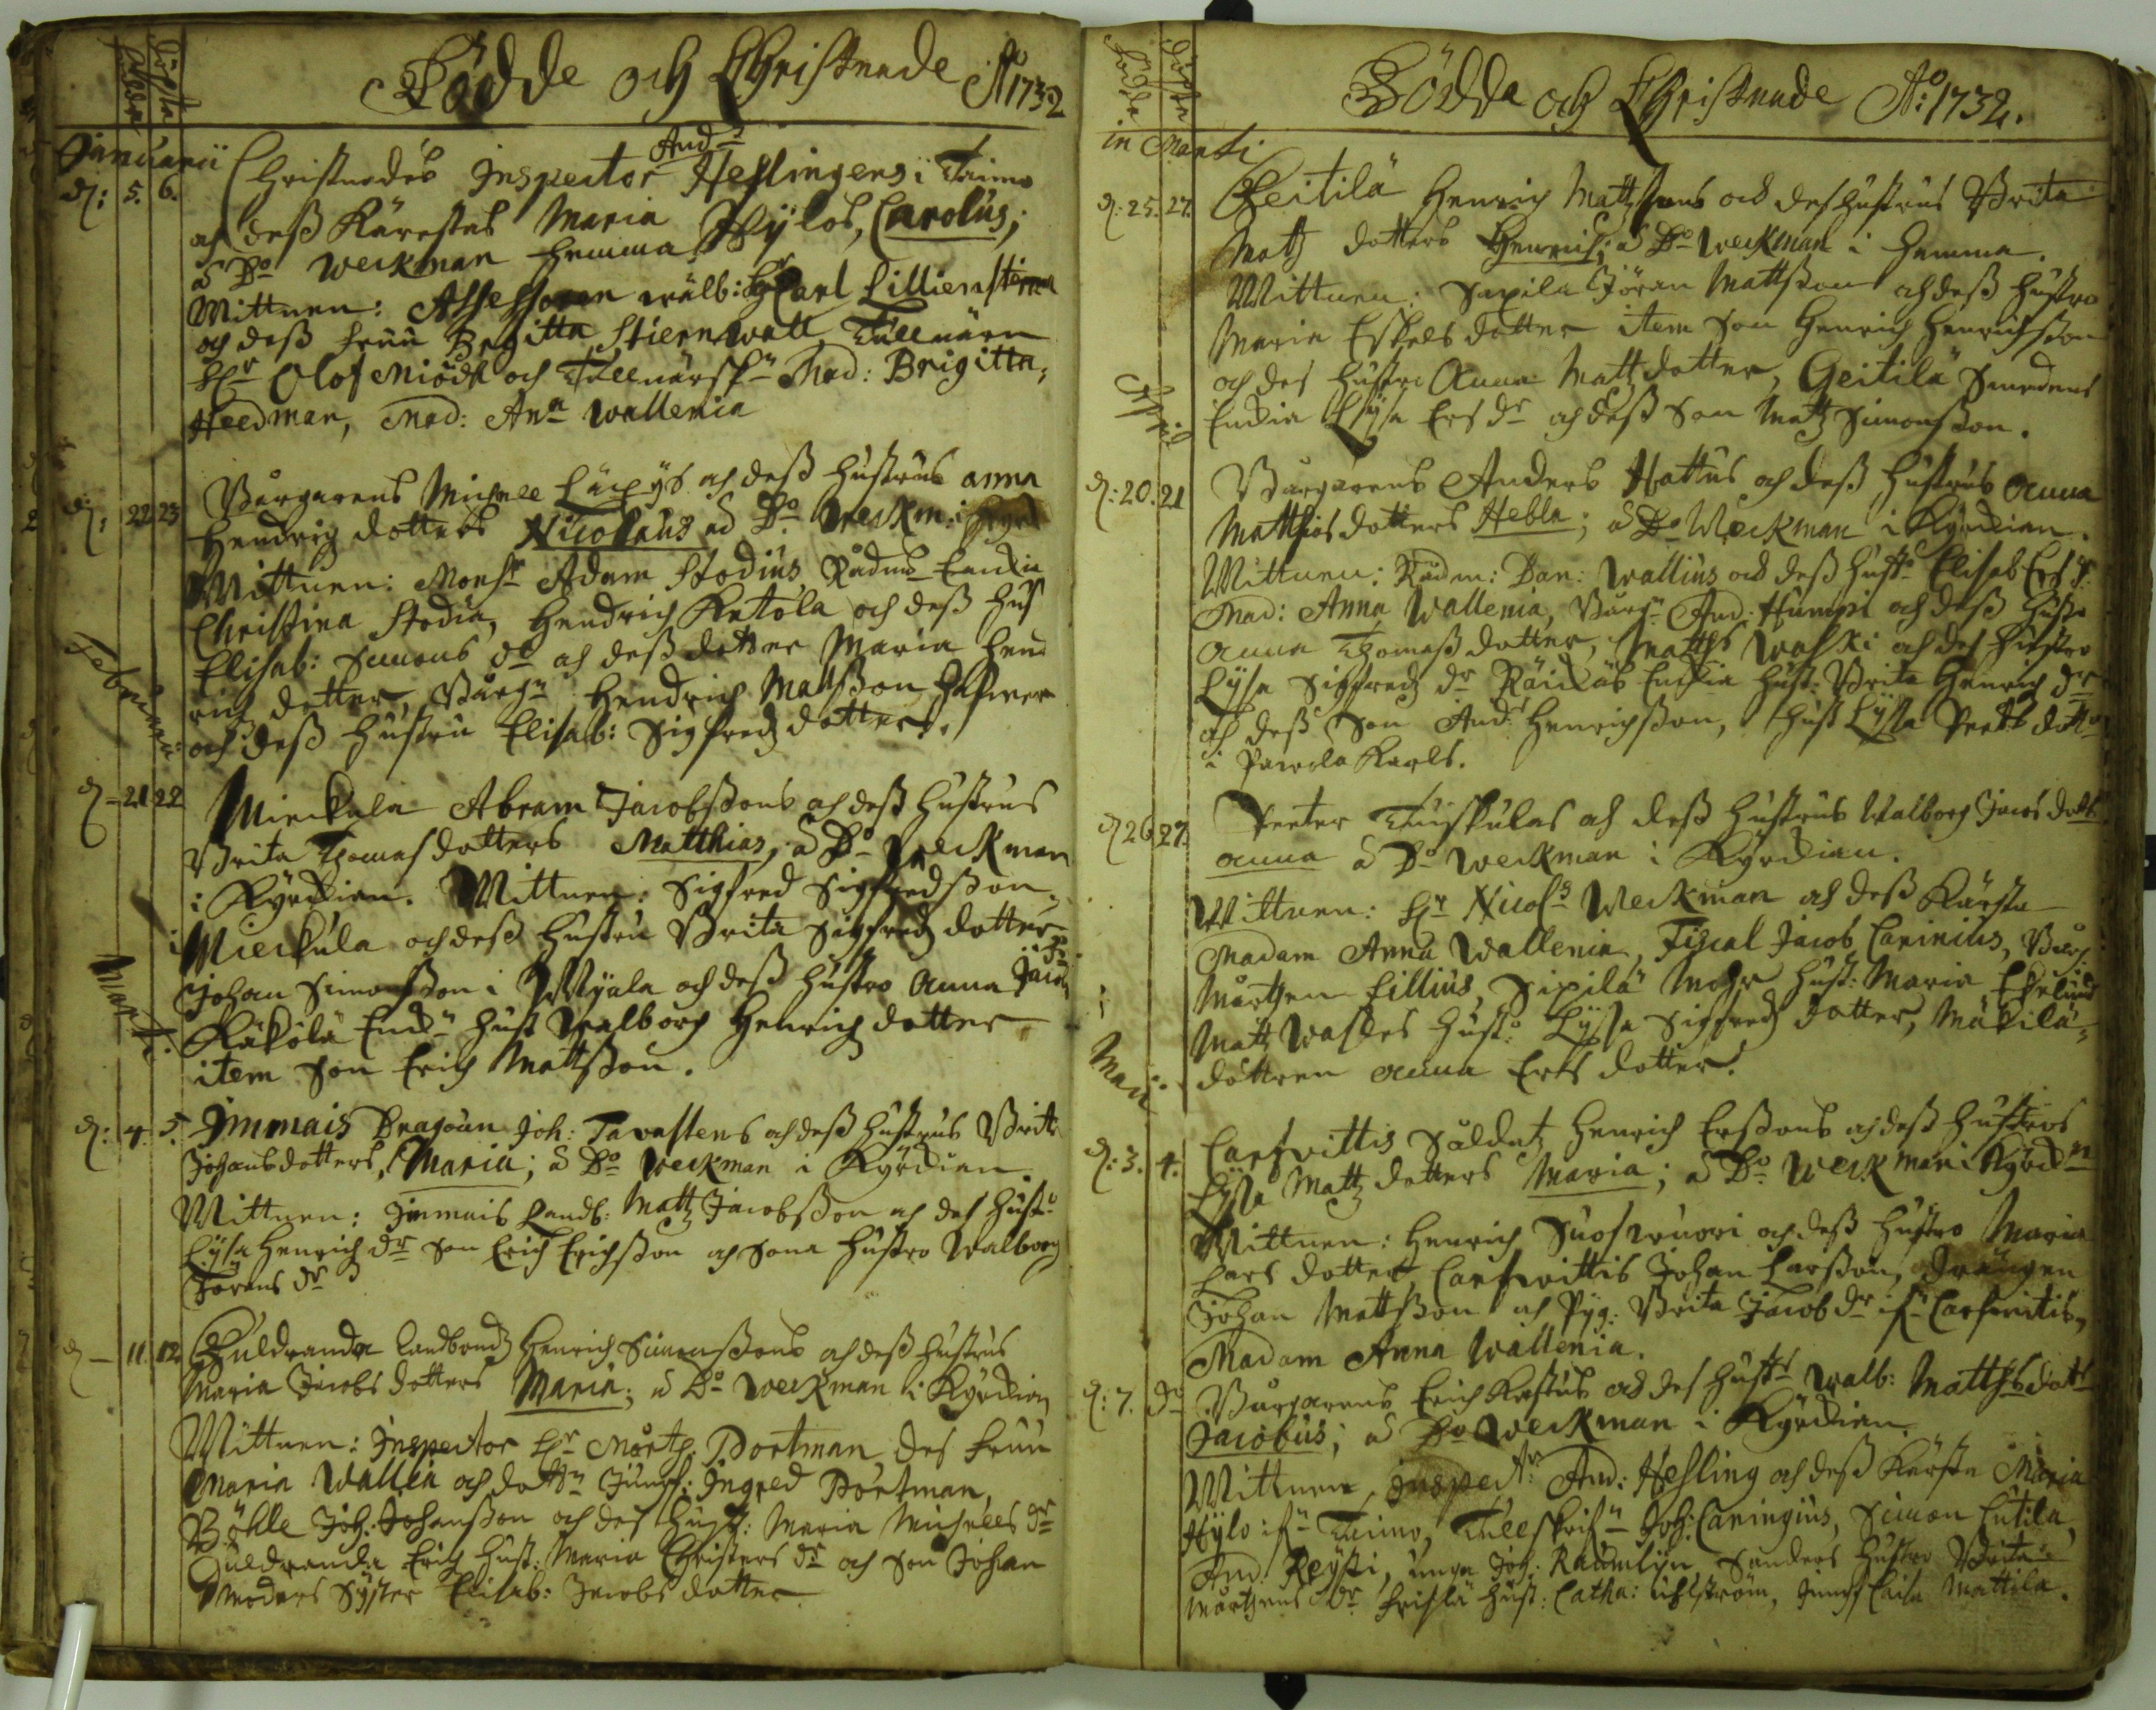 Födde
Döpte
Födde och Christnade Aº 1732
Januarii
And:
d: 5. 6. Christnades Inspector Heslingens i Taimo
och dess Kärestas Maria Hylos, Carolus;
a Dº Weckman hemma
Wittnen: Assessoren wälb: Hr Carl Lillienstierna
och dess fruu Brigitta Stiernwall, Tullnären
Hr Olof Miödh och Tullnärsk: Mad: Brigitta
Heedman, Mad: Ana Wallenia
d: 22 23 Borgarens Michell och dess hustrus Anna
Hendrich dotters Nicolaus a Dº Weckm: i
Wittnen: Monsr Adam Stodius, Rådms Enckia
Christina Stodia, Hendrich Ketola och dess hust
Elisab: Simons dr och dess dotter Maria Hend
rich dotter, Borg: Hendrich Mattsson
och dess hustru Elisab: Sigfredz dotter.
Februarii
d - 21 22 Mickula Abram Jacobssons och dess hustrus
Brita Thomasdotters Matthias, a Dº Weckman
i Kyrckian. Wittnen: Sigfred Sigfredsson
i Mickula och dess hustru Brita Sigfredz dotter
Johan Simonsson i Myala och dess hustro Anna Jacobz dr
Käkölä Enck: hust Walborg Henrich dotter
item son Erich Mattsson.
Marti:
d: 4. 5. Immais Dragoun Joh: Tavastens och dess hustrus Brita
Johansdotters, Maria; a Dº Weckman i Kyrckian
Wittnen: Immais Landb: Mattz Jacobsson och des hust:
Lijsa Henrich dr son Erich Erichsson och sons hustro Walborg
Jörans dr
d - 11. 12. Huldranda landbondz Henrich Simonssons och dess hustrus
Maria Jacobs dotters Maria; a Dº Weckman i Kyrckian
Wittnen: Inspector Hr Mårth. Portman, des fruu
Maria Wallia och dottr Jungf: Ingred Portman,
Böhle Joh. Johansson och des hust: Maria Michells dr
Huldranda Erich hust: Maria Christers dr och son Johan
Moders Syster Elisab: Jacobs dotter
Födde
Döpte
Födde och Christnade Aº: 1732.
in Marti
d: 25. 27. Geitilä Henrich Mattzsons och des hustrus Brita
Matz dotters Henrich; a Dº Weckman i hemma.
Wittnen: Sipila Jöran Mattsson och dess hustro
Maria Eskels dotter item son Henrich Henrichsson
och des hustro Anna Mattz dotter, Geitilä Smedens
Enckia Lijsa Ers dr och dess son Matz Simonsson.
April
d: 20. 21 Borgarens Anders Hattus och dess hustrus Anna
Matthiasdotters Hebla; a Dº Weckman i Kyrckian.
Wittnen: Rådm: Dan: Wallius och dess hustr Elisab Ers d:
Mad: Anna Wallenia, Borg: And: Humpi och dess hustro
Anna Thomass dotter, Matths Waski och des hustro
Lijsa Sigfredz dr Räickäs Enckia hust: Brita Henrich dr
och dess son And: Henrichsson, hust Lijsa Pers dottr
i Pawola Karls.
d 26 27. Peeter Tuiskulas och dess hustrus Walborg Jacobs dotts
Anna a Dº Weckman i Kyrckian.
Wittnen: Hr Nicols Weckman och dess Kärsta
Madam Anna Wallenia, Fiscal Jacob Carinius, Borg:
Mårthen Lillius, Sipilä Mohr hust: Maria Ekelund
Mattz Waskes hust: Lijsa Sigfredz dotter, Mäkilä
dottren Anna Ers dotter.
Maii
d: 3. 4. Carfwittis Soldatz Henrich Erssons och dess hustros
Lijsa Mattz dotters Maria; a Dº Weckman i Kyrckn
Wittnen: Henrich Suoswuori och dess hustro Maria
Lars dotter, Carfwittis Johan Larsson, Drängen
Johan Mattsson och Pyg: Brita Jacob dr ifr Carfwittis,
Madam Anna Wallenia.
d: 7. dº Borgarens Erich Kestus och des hustrs Walb: Matthsdotts
Jacobus; a Dº Weckman i Kyrckian.
Wittnen, Inspectr: And: Hesling och dess Kärsta Maria
Hylo ifr Taimo, Tullskrifr Joh: Caringius, Simon Cutila,
And: Reijsti, unga Joh: Sanders hustro Brita
Mårthens dr Frislä hust: Catha: Uhlström, Jungf Caisa Mattila.